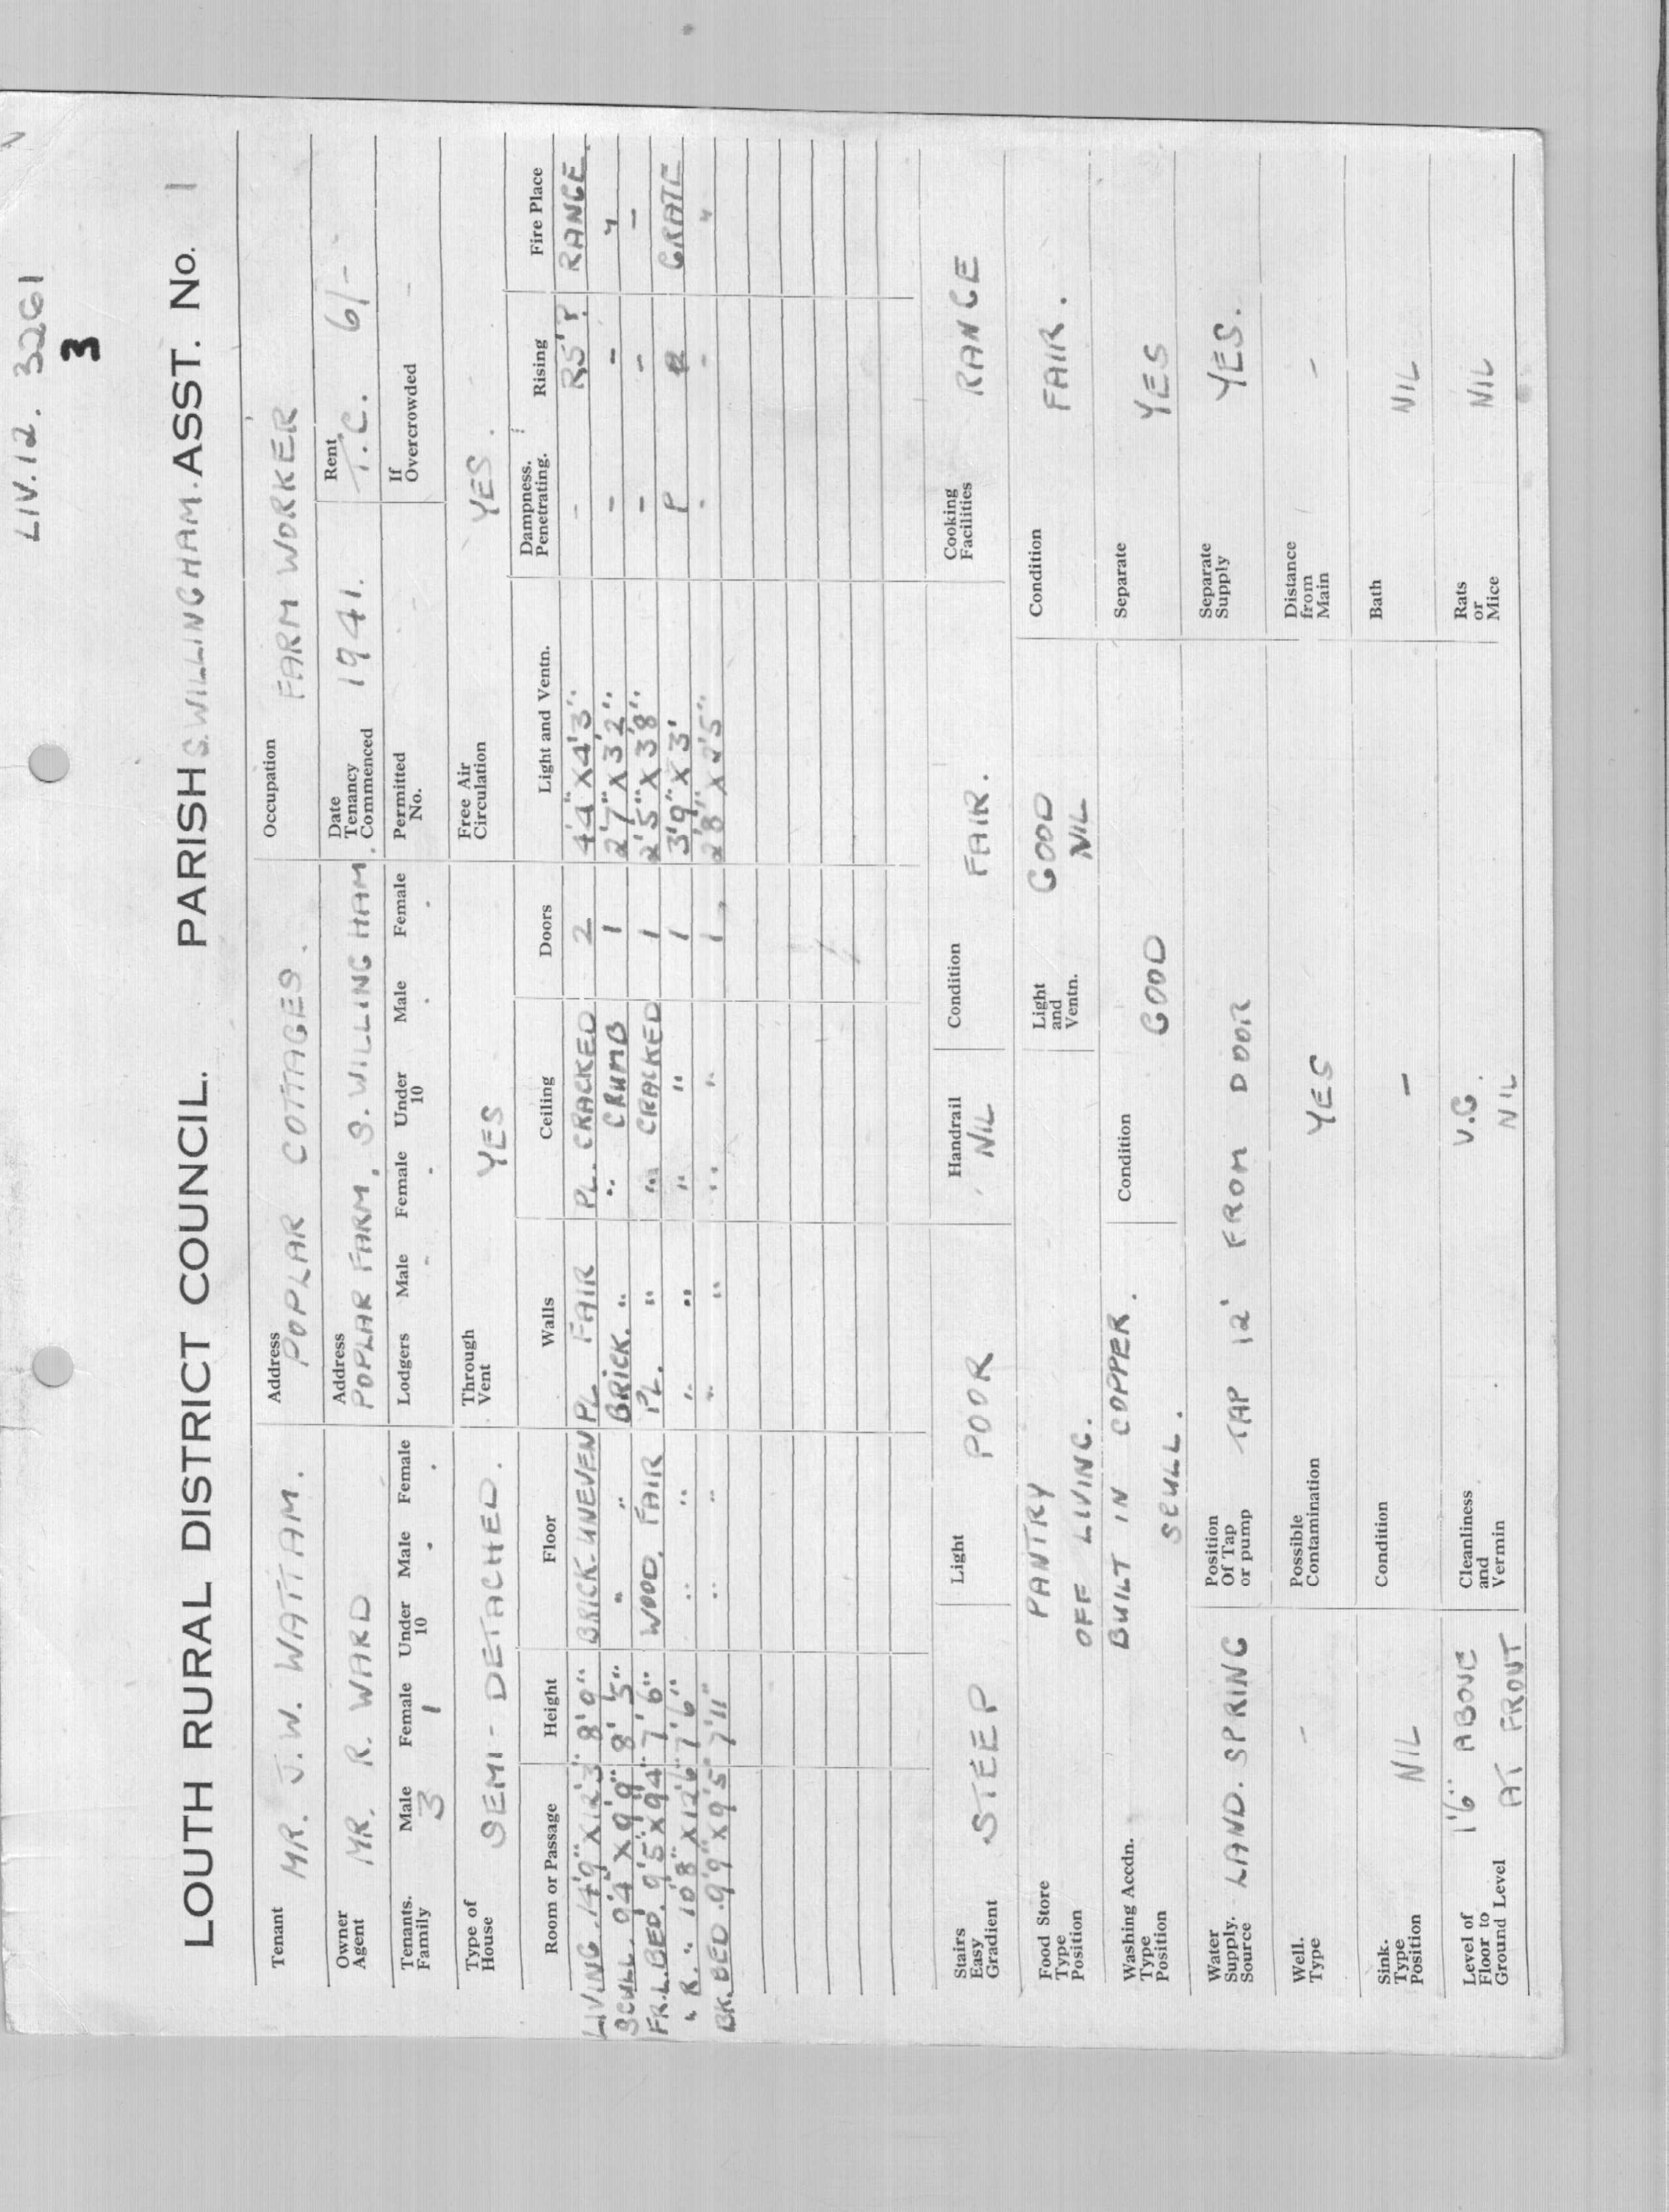 LIV.12. 3261
3
LOUTH RURAL DISTRICT COUNCIL. PARISH S. WILLINGHAM. ASST. No. 1
Tenant MR. J.W. WATTAM. Address POPLAR COTTAGES. Occupation FARM WORKER
Owner Agent MR. R. WARD Address POPLAR FARM, S. WILLINGHAM. Date Tenancy Commenced 1941. Rent T.C. 6/-
Tenants. Family Male 3 Female 1 Under 10 Male . Female . Lodgers Male - Female . Under 10 Male . Female . Permitted No. If Overcrowded -
Type of House SEMI-DETACHED. Through Vent YES Free Air Circulation YES.
Room or Passage Height Floor Walls Ceiling Doors Light and Ventn. Dampness. Penetrating. Rising Fire Place
LIVING. 14'9" X 12'3" 8'0" BRICK-UNEVEN PL FAIR PL. CRACKED 2 4'4" X 4'3" - RS'P. RANGE.
SCULL. 9'4" X 9'9" 8'5" " " BRICK. " " CRUMB 1 2'7" X 3'2" - - "
FR.L.BED. 9'5" X 9'4" 7'6" WOOD. FAIR PL. " " CRACKED 1 2'5" X 3'8" - - -
" R. " 10'8" X 12'6" 7'6" " " " " " " 1 3'9" X 3' P GRATE
BK.BED. 9'9" X 9'5" 7'11" " " " " " " 1 2'8" X 2'5" - - "
Stairs Easy Gradient STEEP Light POOR Handrail NIL Condition FAIR. Cooking Facilities RANGE
Food Store Type Position PANTRY OFF LIVING. Light and Ventn. GOOD NIL Condition FAIR.
Washing Accdn. Type Position BUILT IN COPPER. SCULL. Condition GOOD Separate YES
Water Supply. Source LAND. SPRING Position Of Tap or pump TAP 12' FROM DOOR Separate Supply YES.
Well. Type - Possible Contamination YES Distance from Main -
Sink. Type Position NIL Condition - Bath NIL
Level of Floor to Ground Level 1'6" ABOVE AT FRONT Cleanliness and Vermin V.G. NIL Rats or Mice NIL